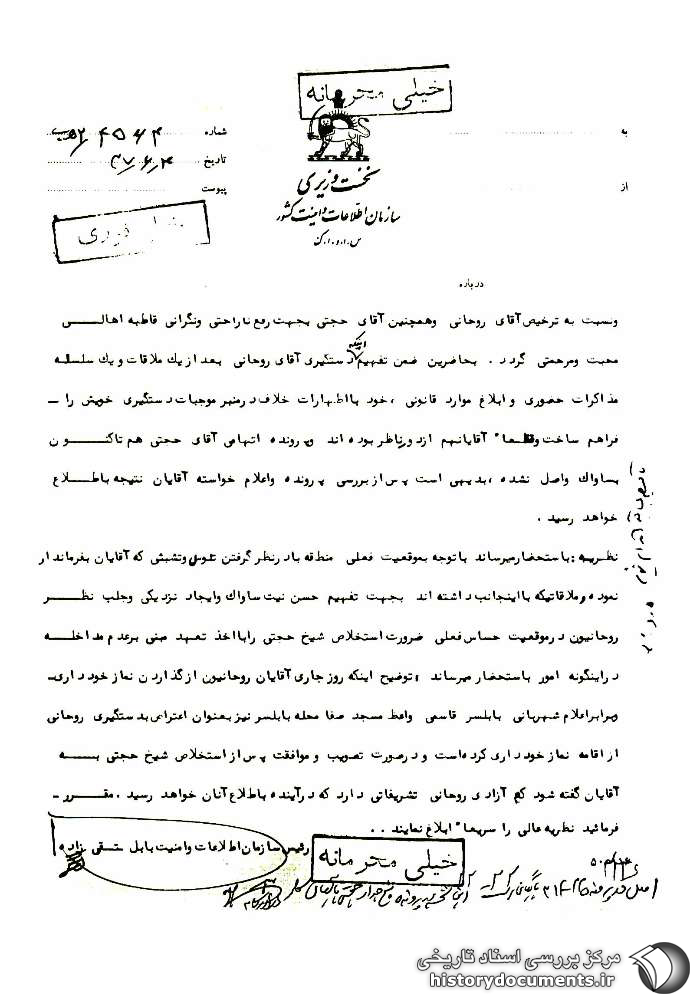 خیلی محرمانه
به
شماره ۴۵۶۴
از
تاریخ ۴۷/۶/۴
پیوست
نخست وزیری
سازمان اطلاعات و امنیت کشور
س.ا.و.ا.ک
خیلی فوری
درباره
ونسبت به ترخیص آقای روحانی وهمچنین آقای حجتی بجهت رفع ناراحتی ونگرانی قاطبه اهالی
محبت ومرحمتی گردد . بحاضرین ضمن تفهیم اینکه دستگیری آقای روحانی بعد از یک ملاقات و یک سلسله
مذاکرات حضوری و ابلاغ موارد قانونی ، خود با اظهارات خلاف در منبر موجبات دستگیری خویش را -
فراهم ساخت وقطعا" آقایانهم از دور ناظر بوده اند وپرونده اتهامی آقای حجتی هم تاکنون
بساواک واصل نشده ، بدیهی است پس از بررسی پرونده واعلام خواسته آقایان نتیجه باطلاع
خواهد رسید .
نظریه : باستحضار میرساند با توجه بموقعیت فعلی منطقه با در نظر گرفتن تلوس وتشبثی که آقایان بفرماندار
نموده و ملاقاتیکه با اینجانب داشته اند بجهت تفهیم حسن نیت ساواک وایجاد نزدیکی وجلب نظر
روحانیون در موقعیت حساس فعلی ضرورت استخلاص شیخ حجتی را با اخذ تعهد مبنی بر عدم مداخله
در اینگونه امور باستحضار میرساند ، توضیح اینکه روز جاری آقایان روحانیون از گذاردن نماز خودداری -
وبرابر اعلام شهربانی بابلسر قاسمی واعظ مسجد صفا محله بابلسر نیز بعنوان اعتراض بدستگیری روحانی
از اقامه نماز خودداری کرده است و در صورت تصویب و موافقت پس از استخلاص شیخ حجتی به
آقایان گفته شود که آزادی روحانی تشریفاتی دارد که در آینده باطلاع آنان خواهد رسید . مقرر -
فرمائید نظریه عالی را سریعا" ابلاغ نمایند . .
رئیس سازمان اطلاعات و امنیت بابل متقی زاده
خیلی محرمانه
مرکز بررسی اسناد تاریخی
historydocuments.ir